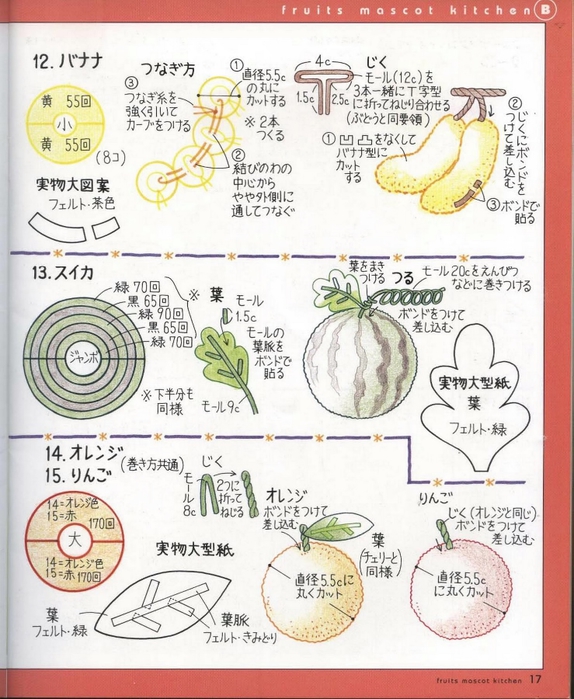 fruits mascot kitchen B
12. バナナ
黄 55回
小
黄 55回
(8コ)
実物大図案
フェルト・茶色
つなぎ方
③
つなぎ糸を
強く引いて
カーブをつける
①
直径5.5c
の丸に
カットする
※2本
つくる
②
結びのわの
中心から
やや外側に
通してつなぐ
4c
1.5c
2.5c
じく
モール(12c)を
3本一緒にT字型
に折ってねじり合わせる
(ぶどうと同要領)
①凹凸をなくして
バナナ型に
カット
する
②
じくにボンドを
つけて差し込む
③ボンドで
貼る
13.スイカ
緑70回
黒65回
緑90回
黒65回
緑70回
ジャンボ
※下半分も
同様
※
葉
モール
1.5c
モールの
葉脈を
ボンドで
貼る
モール9c
葉をまき
つける
つる
モール20cをえんぴつ
などに巻きつける
ボンドをつけて
差し込む
実物大型紙
葉
フェルト・緑
14.オレンジ
15.りんご
(巻き方共通)
14=オレンジ色
15=赤
170回
大
14=オレンジ色
15=赤170回
じく
モール
8c
2つに
折って
ねじる
実物大型紙
葉
フェルト・緑
葉脈
フェルト・きみどり
オレンジ
ボンドをつけて
差し込む
葉
(チェリーと
同様)
直径5.5cに
丸くカット
りんご
じく(オレンジと同じ)
ボンドをつけて
差し込む
直径5.5c
に丸くカット
fruits mascot kitchen 17